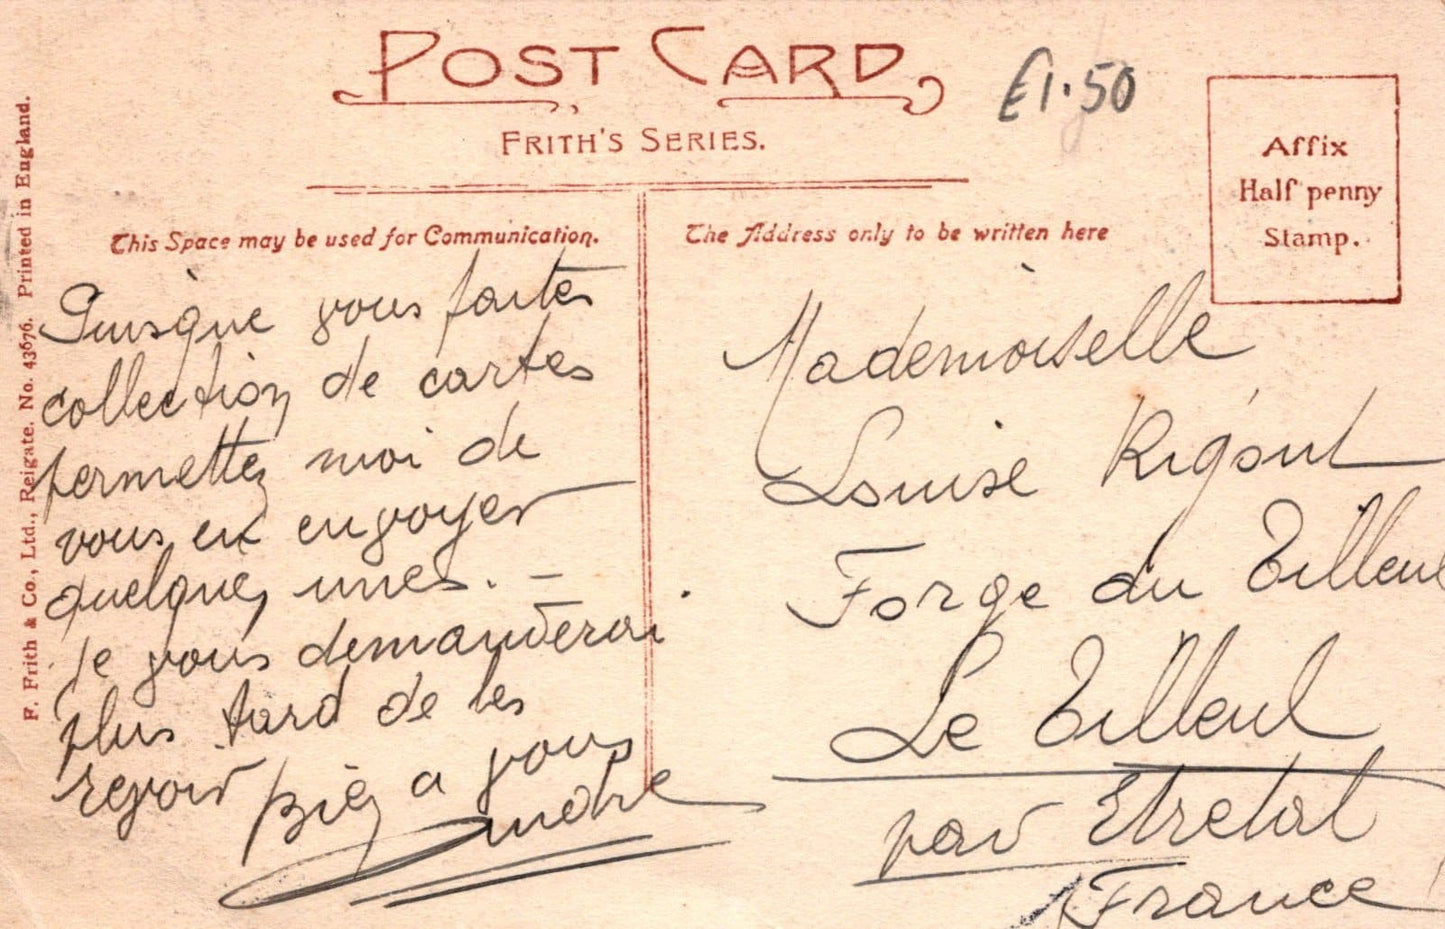 POST CARD
FRITH'S SERIES.
£1.50
Affix
Half penny
Stamp.
F. Frith & Co., Ltd., Reigate. No. 43676. Printed in England.
This Space may be used for Communication.
Puisque vous faites
collection de cartes
permettez moi de
vous en envoyer
quelques unes. –
je vous demanderai
plus tard de les
revoir Bien a vous
André
The Address only to be written here
Mademoiselle
Louise
Forge du Tilleul
Le Tilleul
par Etretat
France